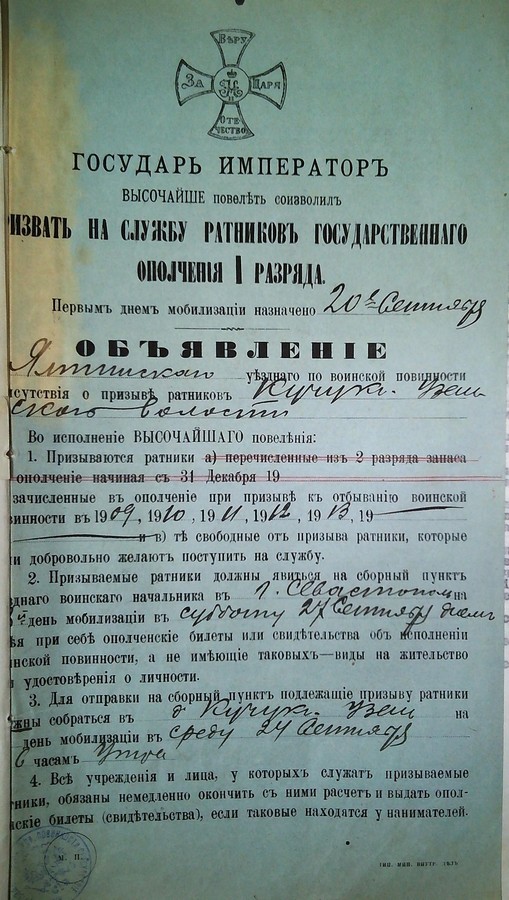 ВѢРУ
ЗА ЦАРЯ
ОТЕ-
ЧЕСТВО
ГОСУДАРЬ ИМПЕРАТОРЪ
ВЫСОЧАЙШЕ повелѣть соизволилъ
РИЗВАТЬ НА СЛУЖБУ РАТНИКОВЪ ГОСУДАРСТВЕННАГО
ОПОЛЧЕНІЯ I РАЗРЯДА.
Первымъ днемъ мобилизаціи назначено 20е Сентября
ОБЪЯВЛЕНІЕ
Ялтинскаго уѣзднаго по воинской повинности
исутствія о призывѣ ратниковъ Кучукъ-Узень
ской волости
Во исполненіе ВЫСОЧАЙШАГО повелѣнія:
1. Призываются ратники а) перечисленные изъ 2 разряда запаса
ополченіе начиная съ 31 Декабря 19
зачисленные въ ополченіе при призывѣ къ отбыванію воинской
винности въ 1909, 1910, 1911, 1912, 1913, 19
и в) тѣ свободные отъ призыва ратники, которые
и добровольно желаютъ поступить на службу.
2. Призываемые ратники должны явиться на сборный пунктъ
зднаго воинскаго начальника въ г. Севастополь на
день мобилизаціи въ субботу 27 Сентября
ѣя при себѣ ополченскіе билеты или свидѣтельства объ исполненіи
инской повинности, а не имѣющіе таковыхъ—виды на жительство
и удостовѣренія о личности.
3. Для отправки на сборный пунктъ подлежащіе призыву ратники
жны собраться въ д. Кучукъ-Узень на
день мобилизаціи въ среду 24 Сентября
6 часамъ Утра
4. Всѣ учрежденія и лица, у которыхъ служатъ призываемые
тники, обязаны немедленно окончить съ ними расчетъ и выдать опол-
нскіе билеты (свидѣтельства), если таковые находятся у нанимателей.
М. П.
ТИП. МИН. ВНУТР. ДѢЛЪ.